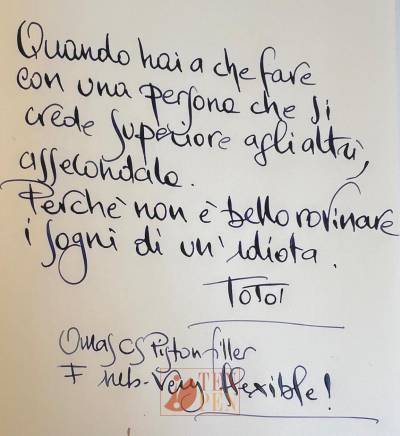 Quando hai a che fare
con una persona che si
crede superiore agli altri,
assecondala.
Perchè non è bello rovinare
i sogni di un'idiota.
TOTOI
Omas CS Piston filler
F nib-Very flexible!
TEN
PEN